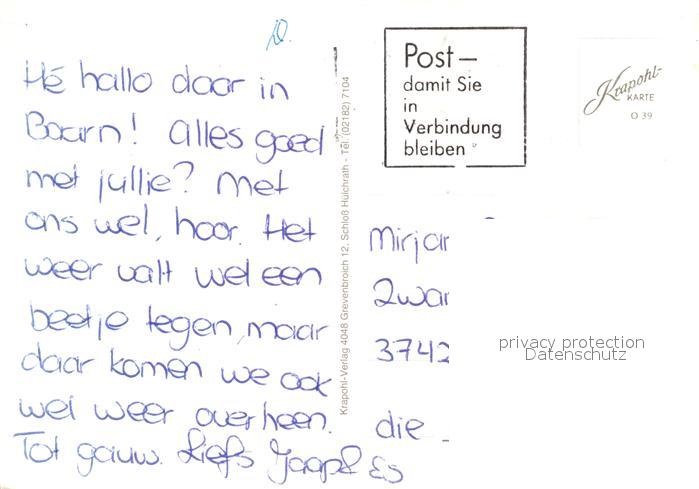 Hé hallo daar in
Baarn! Alles goed
met jullie? Met
ons wel, hoor. Het
weer valt wel een
beetje tegen, maar
daar komen we ook
wel weer overheen.
Tot gauw. Liefs Jaap & Es
Krapohl-Verlag 4048 Grevenbroich 12, Schloß Hülchrath - Tel. (02182) 7104
Post –
damit Sie
in
Verbindung
bleiben
Krapohl-
KARTE
O 39
Mirjar
Zwar
3742
die
privacy protection
Datenschutz